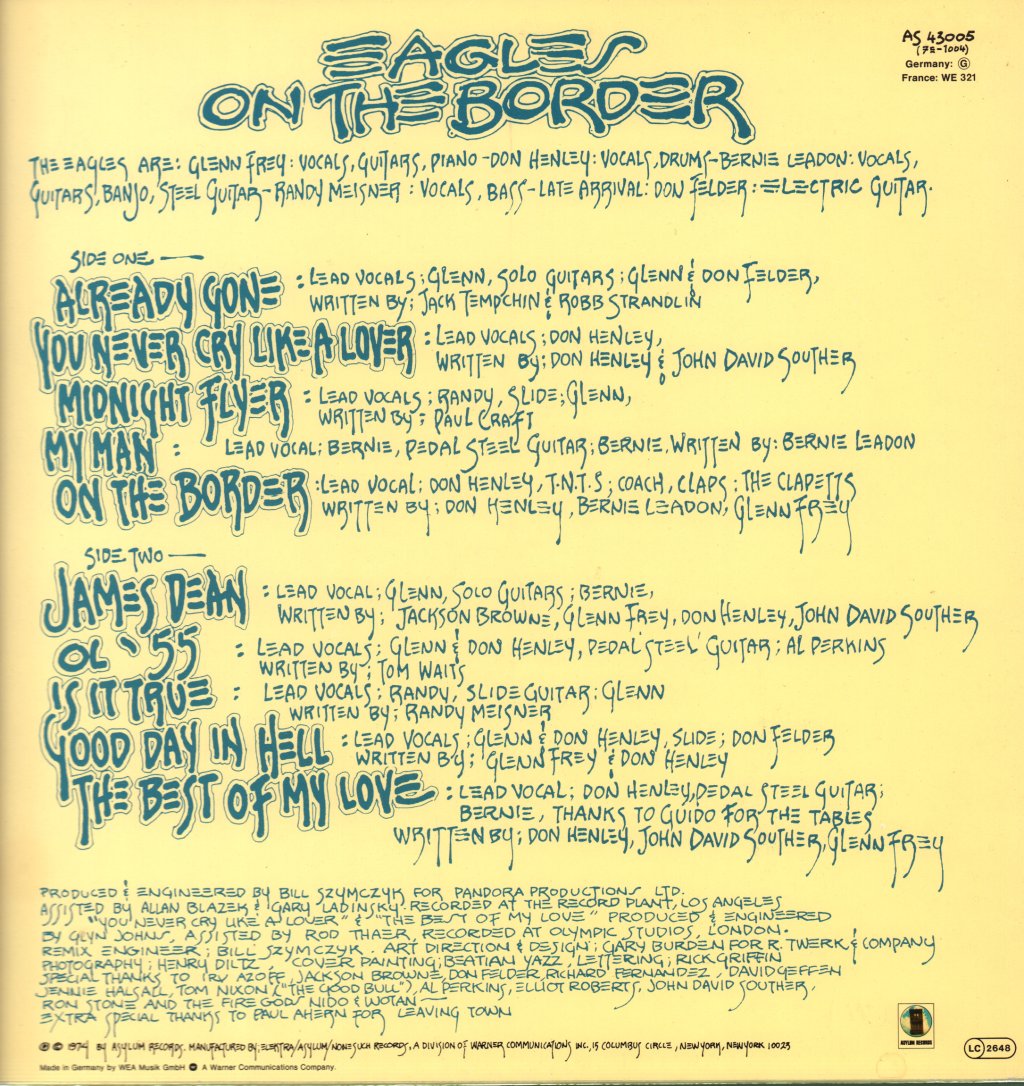 EAGLES
ON THE BORDER
AS 43005
(7E-1004)
Germany: G
France: WE 321
THE EAGLES ARE: GLENN FREY: VOCALS, GUITARS, PIANO - DON HENLEY: VOCALS, DRUMS - BERNIE LEADON: VOCALS,
GUITARS, BANJO, STEEL GUITAR - RANDY MEISNER : VOCALS, BASS - LATE ARRIVAL: DON FELDER : ELECTRIC GUITAR.
SIDE ONE —
ALREADY GONE : LEAD VOCALS; GLENN, SOLO GUITARS; GLENN & DON FELDER,
WRITTEN BY; JACK TEMPCHIN & ROBB STRANDLIN
YOU NEVER CRY LIKE A LOVER : LEAD VOCALS; DON HENLEY,
WRITTEN BY; DON HENLEY & JOHN DAVID SOUTHER
MIDNIGHT FLYER : LEAD VOCALS; RANDY, SLIDE; GLENN,
WRITTEN BY; PAUL CRAFT
MY MAN : LEAD VOCAL; BERNIE, PEDAL STEEL GUITAR; BERNIE, WRITTEN BY: BERNIE LEADON
ON THE BORDER : LEAD VOCAL; DON HENLEY, T.N.T.S; COACH, CLAPS; THE CLAPETTS
WRITTEN BY; DON HENLEY, BERNIE LEADON, GLENN FREY
SIDE TWO —
JAMES DEAN : LEAD VOCAL; GLENN, SOLO GUITARS; BERNIE,
WRITTEN BY; JACKSON BROWNE, GLENN FREY, DON HENLEY, JOHN DAVID SOUTHER
OL '55 : LEAD VOCALS; GLENN & DON HENLEY, PEDAL STEEL GUITAR; AL PERKINS
WRITTEN BY; TOM WAITS
IS IT TRUE : LEAD VOCALS; RANDY, SLIDE GUITAR: GLENN
WRITTEN BY; RANDY MEISNER
GOOD DAY IN HELL : LEAD VOCALS; GLENN & DON HENLEY, SLIDE; DON FELDER
WRITTEN BY; GLENN FREY & DON HENLEY
THE BEST OF MY LOVE : LEAD VOCAL; DON HENLEY, PEDAL STEEL GUITAR;
BERNIE, THANKS TO GUIDO FOR THE TABLES
WRITTEN BY; DON HENLEY, JOHN DAVID SOUTHER, GLENN FREY
PRODUCED & ENGINEERED BY BILL SZYMCZYK FOR PANDORA PRODUCTIONS LTD.
ASSISTED BY ALLAN BLAZEK & GARY LADINSKY. RECORDED AT THE RECORD PLANT, LOS ANGELES
"YOU NEVER CRY LIKE A LOVER" & "THE BEST OF MY LOVE" PRODUCED & ENGINEERED
BY GLYN JOHNS, ASSISTED BY ROD THAER, RECORDED AT OLYMPIC STUDIOS, LONDON.
REMIX ENGINEER; BILL SZYMCZYK. ART DIRECTION & DESIGN; GARY BURDEN FOR R. TWERK & COMPANY
PHOTOGRAPHY; HENRY DILTZ COVER PAINTING; BEATIAN YAZZ, LETTERING; RICK GRIFFIN
SPECIAL THANKS TO IRV AZOFF, JACKSON BROWNE, DON FELDER, RICHARD FERNANDEZ, DAVID GEFFEN
JENNIE HALSALL, TOM NIXON ("THE GOOD BULL"), AL PERKINS, ELLIOT ROBERTS, JOHN DAVID SOUTHER,
RON STONE AND THE FIRE GODS NIDO & WOTAN —
EXTRA SPECIAL THANKS TO PAUL AHERN FOR LEAVING TOWN
ASYLUM RECORDS
℗ © 1974 BY ASYLUM RECORDS. MANUFACTURED BY; ELEKTRA/ASYLUM/NONESUCH RECORDS, A DIVISION OF WARNER COMMUNICATIONS INC, 15 COLUMBUS CIRCLE, NEW YORK, NEW YORK 10023
LC 2648
Made in Germany by WEA Musik GmbH A Warner Communications Company.